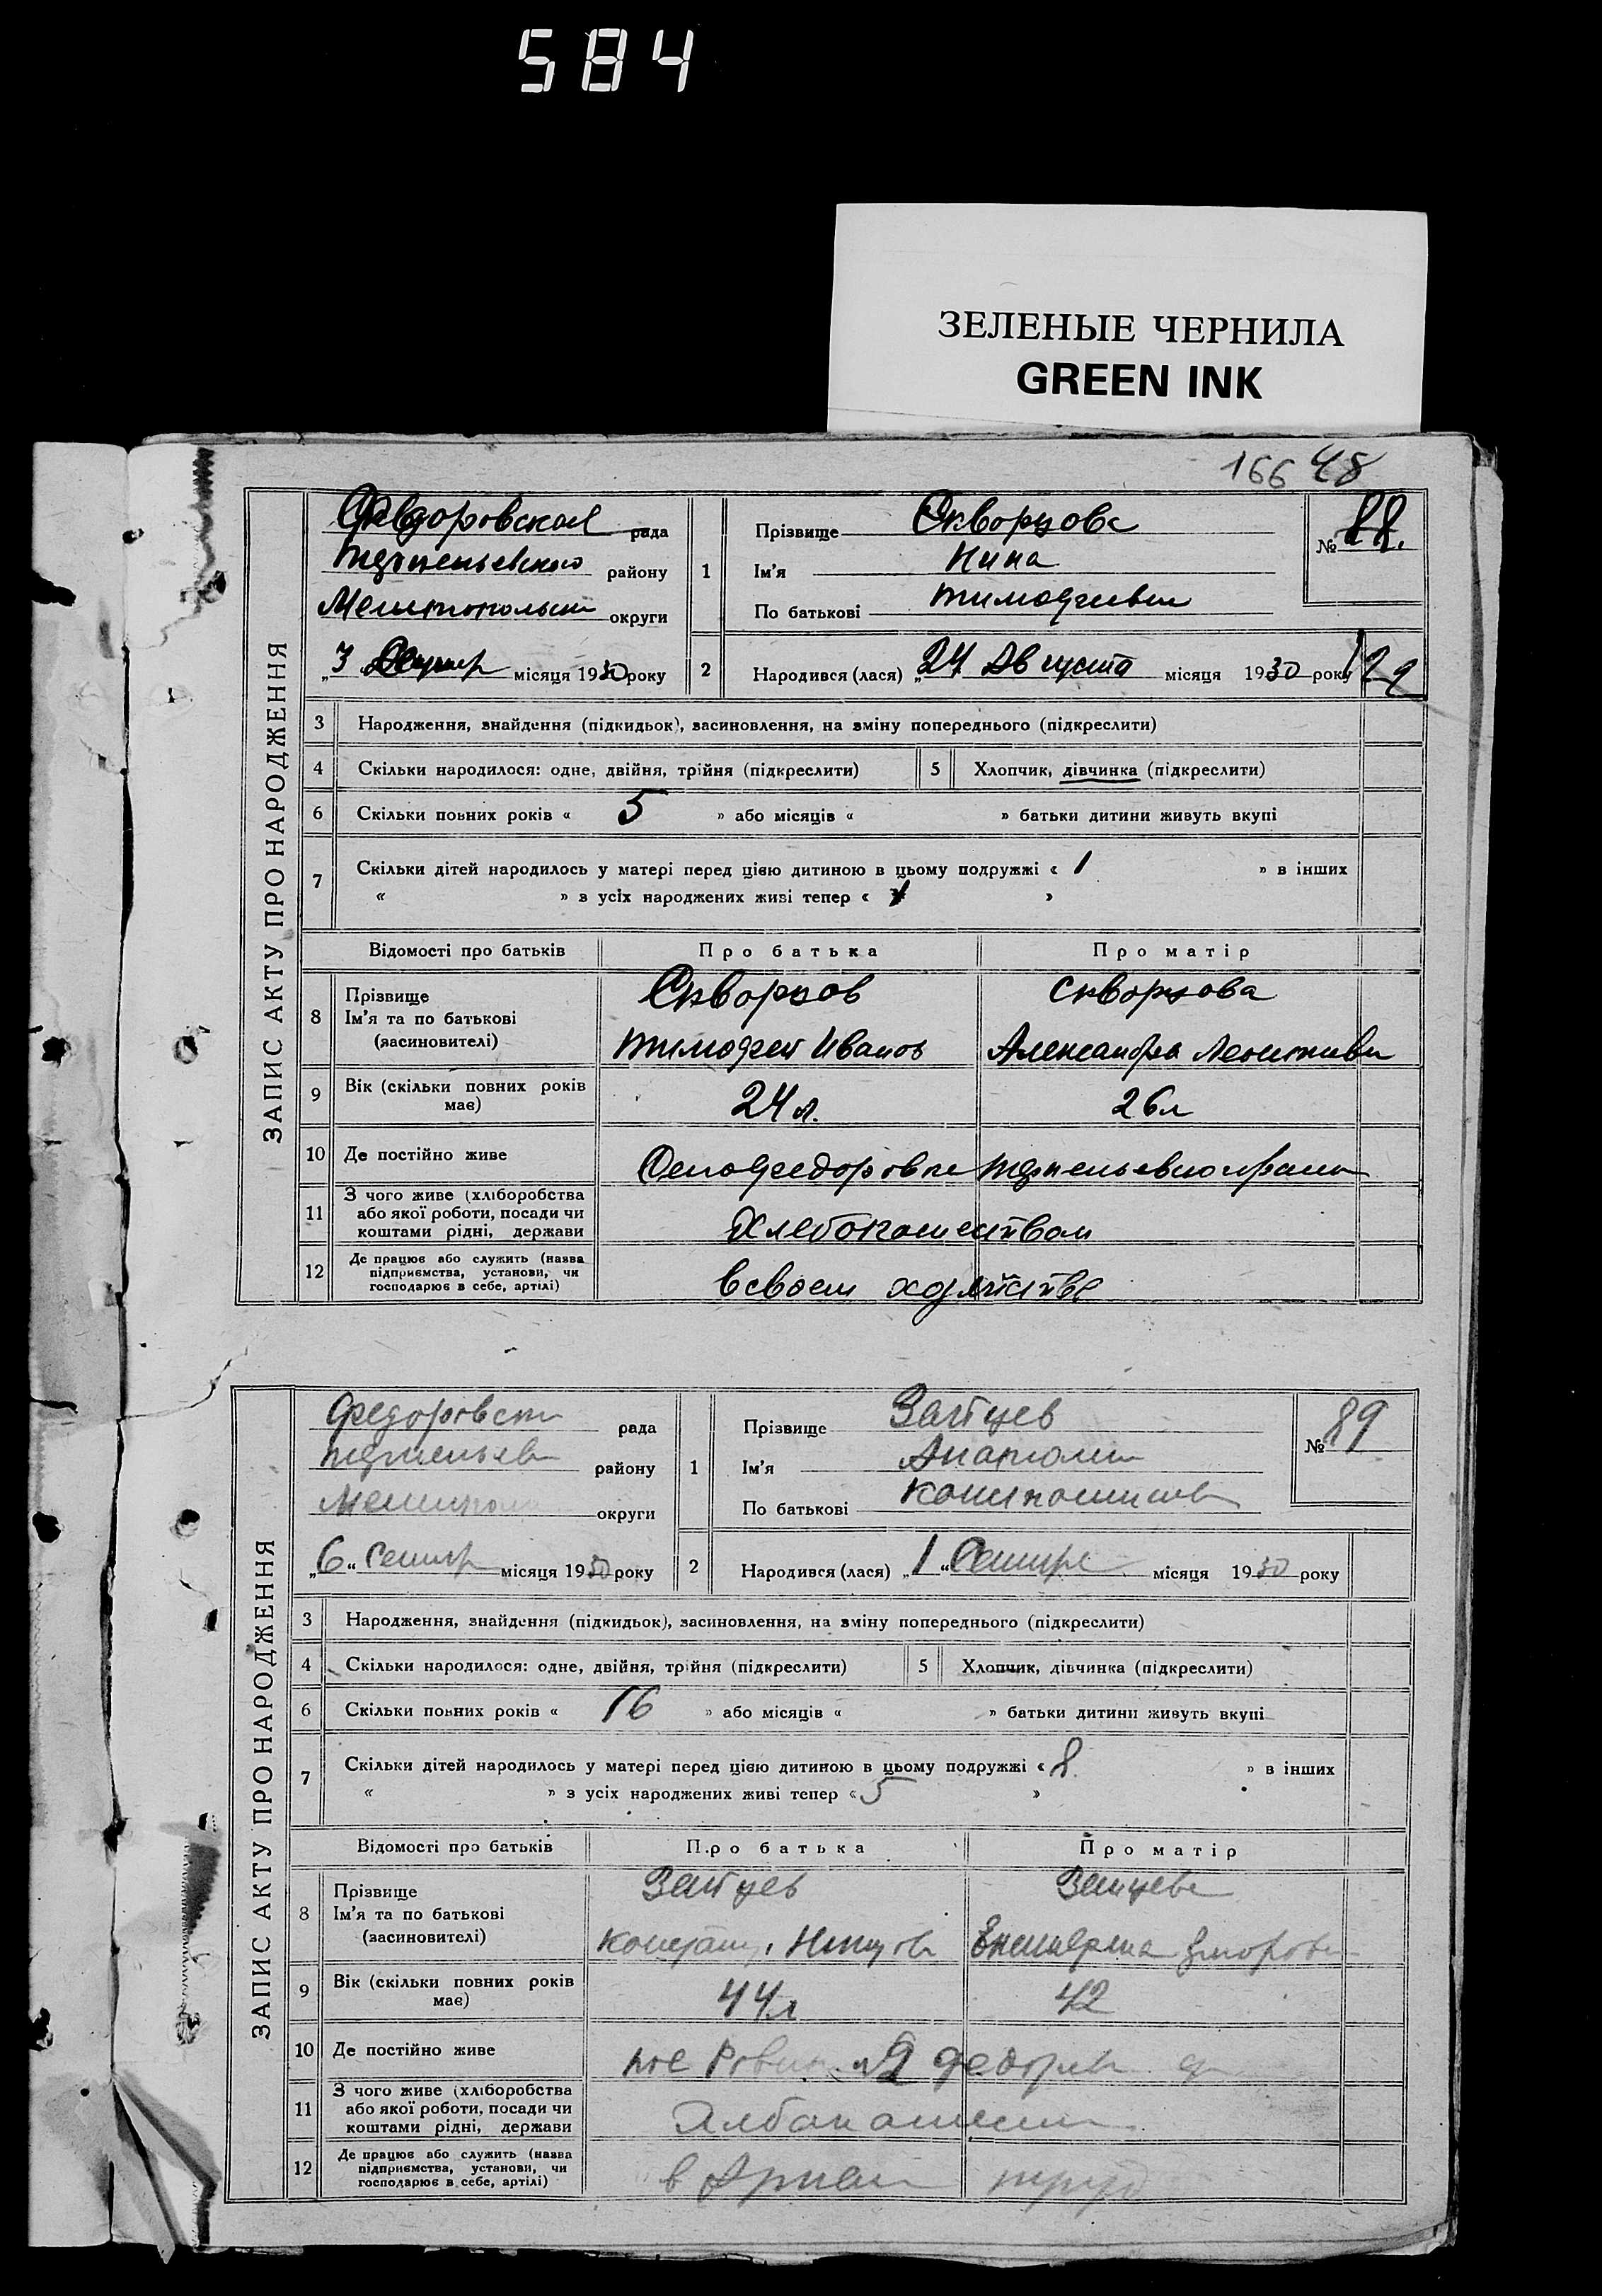 584
ЗЕЛЕНЫЕ ЧЕРНИЛА
GREEN INK
166 48
ЗАПИС АКТУ ПРО НАРОДЖЕННЯ
Федоровская рада
району
округи
„3 місяця 1930 року
1
Прізвище Скворцова
Ім'я Нина
По батькові
№ 88.
2 Народився (лася) „24 Августа місяця 1930 року
3 Народження, знайдення (підкидьок), засиновлення, на зміну попереднього (підкреслити)
4 Скільки народилося: одне, двійня, трійня (підкреслити) 5 Хлопчик, дівчинка (підкреслити)
6 Скільки повних років « 5 » або місяців « » батьки дитини живуть вкупі
7 Скільки дітей народилось у матері перед цією дитиною в цьому подружжі « 1 » в інших
« » з усіх народжених живі тепер « »
Відомості про батьків Про батька Про матір
8 Прізвище
Ім'я та по батькові
(засиновителі)
Скворцов Скворцова
Тимофей Иванов Александра
9 Вік (скільки повних років
має)
24 л. 26 л
10 Де постійно живе
11 З чого живе (хліборобства
або якої роботи, посади чи
коштами рідні, держави
Хлебопашеством
12 Де працює або служить (назва
підприємства, установи, чи
господарює в себе, артілі)
в своем хозяйстве
ЗАПИС АКТУ ПРО НАРОДЖЕННЯ
рада
району
округи
„6“ місяця 1930 року
1
Прізвище Зайцев
Ім'я
По батькові
№ 89
2 Народився (лася) „1“ місяця 1930 року
3 Народження, знайдення (підкидьок), засиновлення, на зміну попереднього (підкреслити)
4 Скільки народилося: одне, двійня, трійня (підкреслити) 5 Хлопчик, дівчинка (підкреслити)
6 Скільки повних років « 16 » або місяців « » батьки дитини живуть вкупі
7 Скільки дітей народилось у матері перед цією дитиною в цьому подружжі « 8 » в інших
« » з усіх народжених живі тепер « 5 »
Відомості про батьків Про батька Про матір
8 Прізвище
Ім'я та по батькові
(засиновителі)
Зайцев Зайцева
9 Вік (скільки повних років
має)
44 л 42
10 Де постійно живе
11 З чого живе (хліборобства
або якої роботи, посади чи
коштами рідні, держави
12 Де працює або служить (назва
підприємства, установи, чи
господарює в себе, артілі)